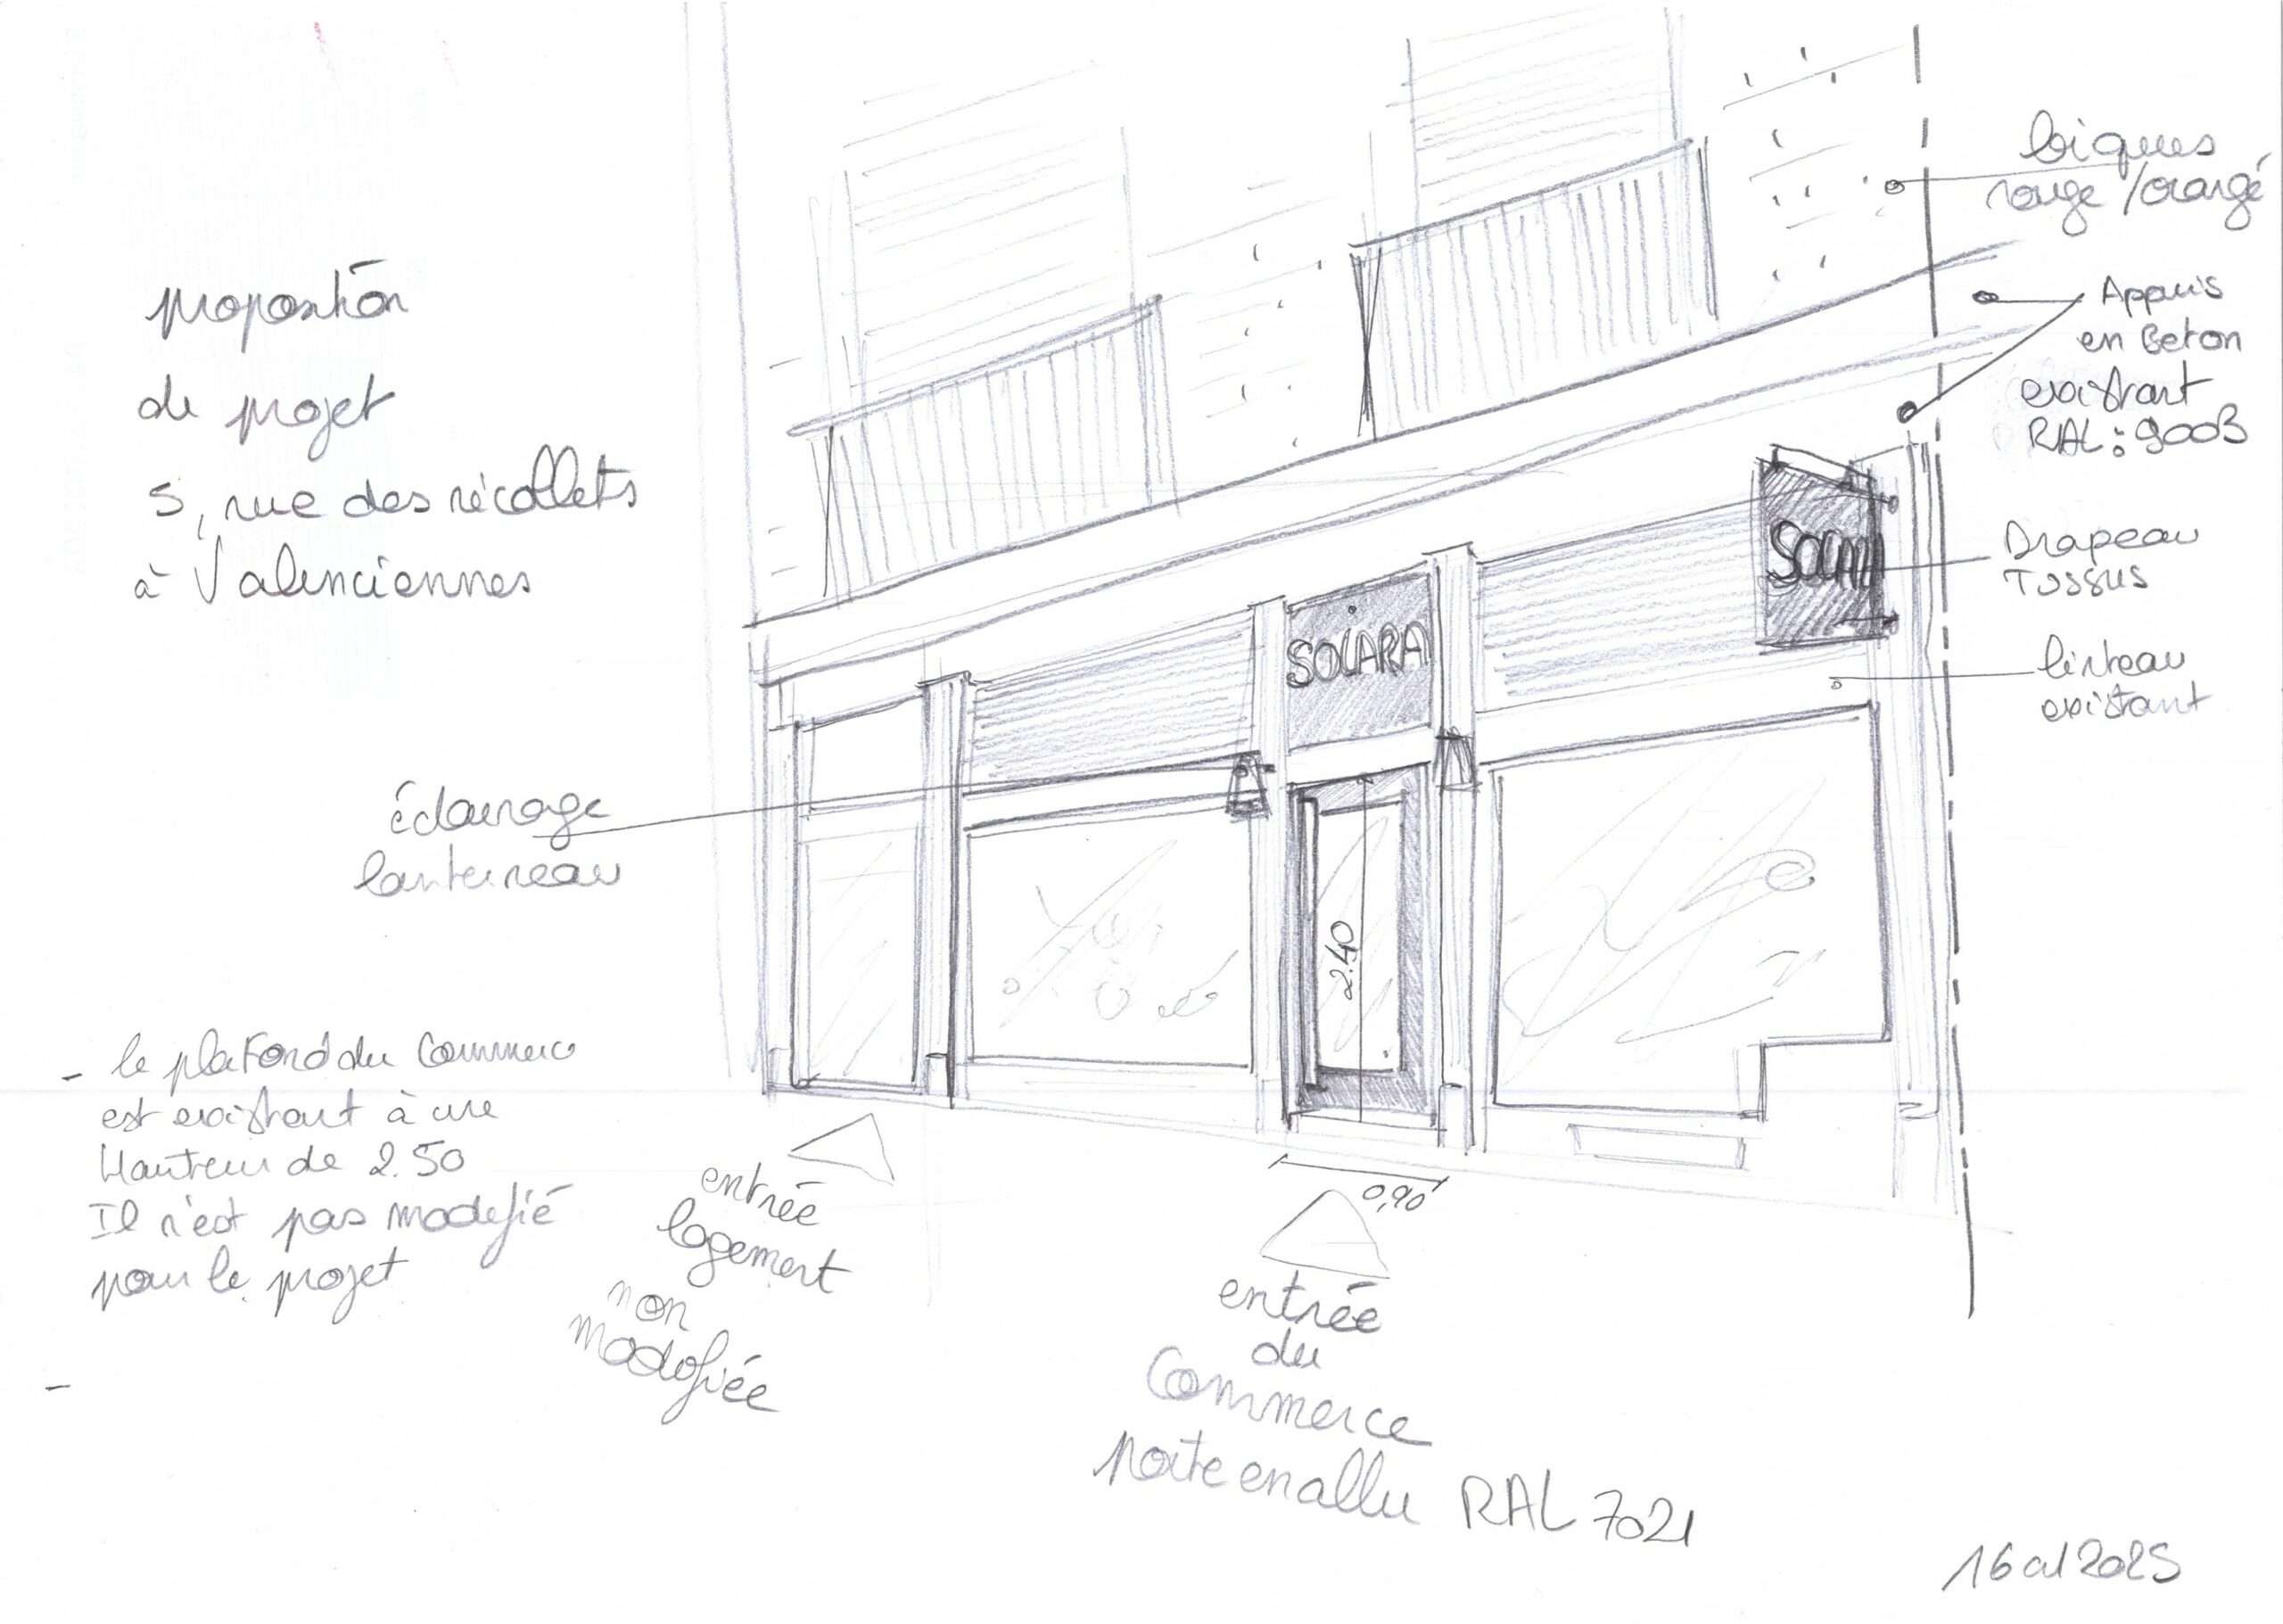 proposition
de projet
5, rue des récollets
à Valenciennes
biques
rouge / orangé
Appuis
en Beton
existant
RAL : 9003
Drapeau
Tissus
linteau
existant
SOLARA
SOLARA
éclairage
lanterneau
2.40
0,90
- le plafond du Commerce
est existant à une
Hauteur de 2.50
Il n'est pas modifié
pour le projet
-
entrée
logement
non
modifiée
entrée
du
Commerce
porte en allu RAL 7021
2025